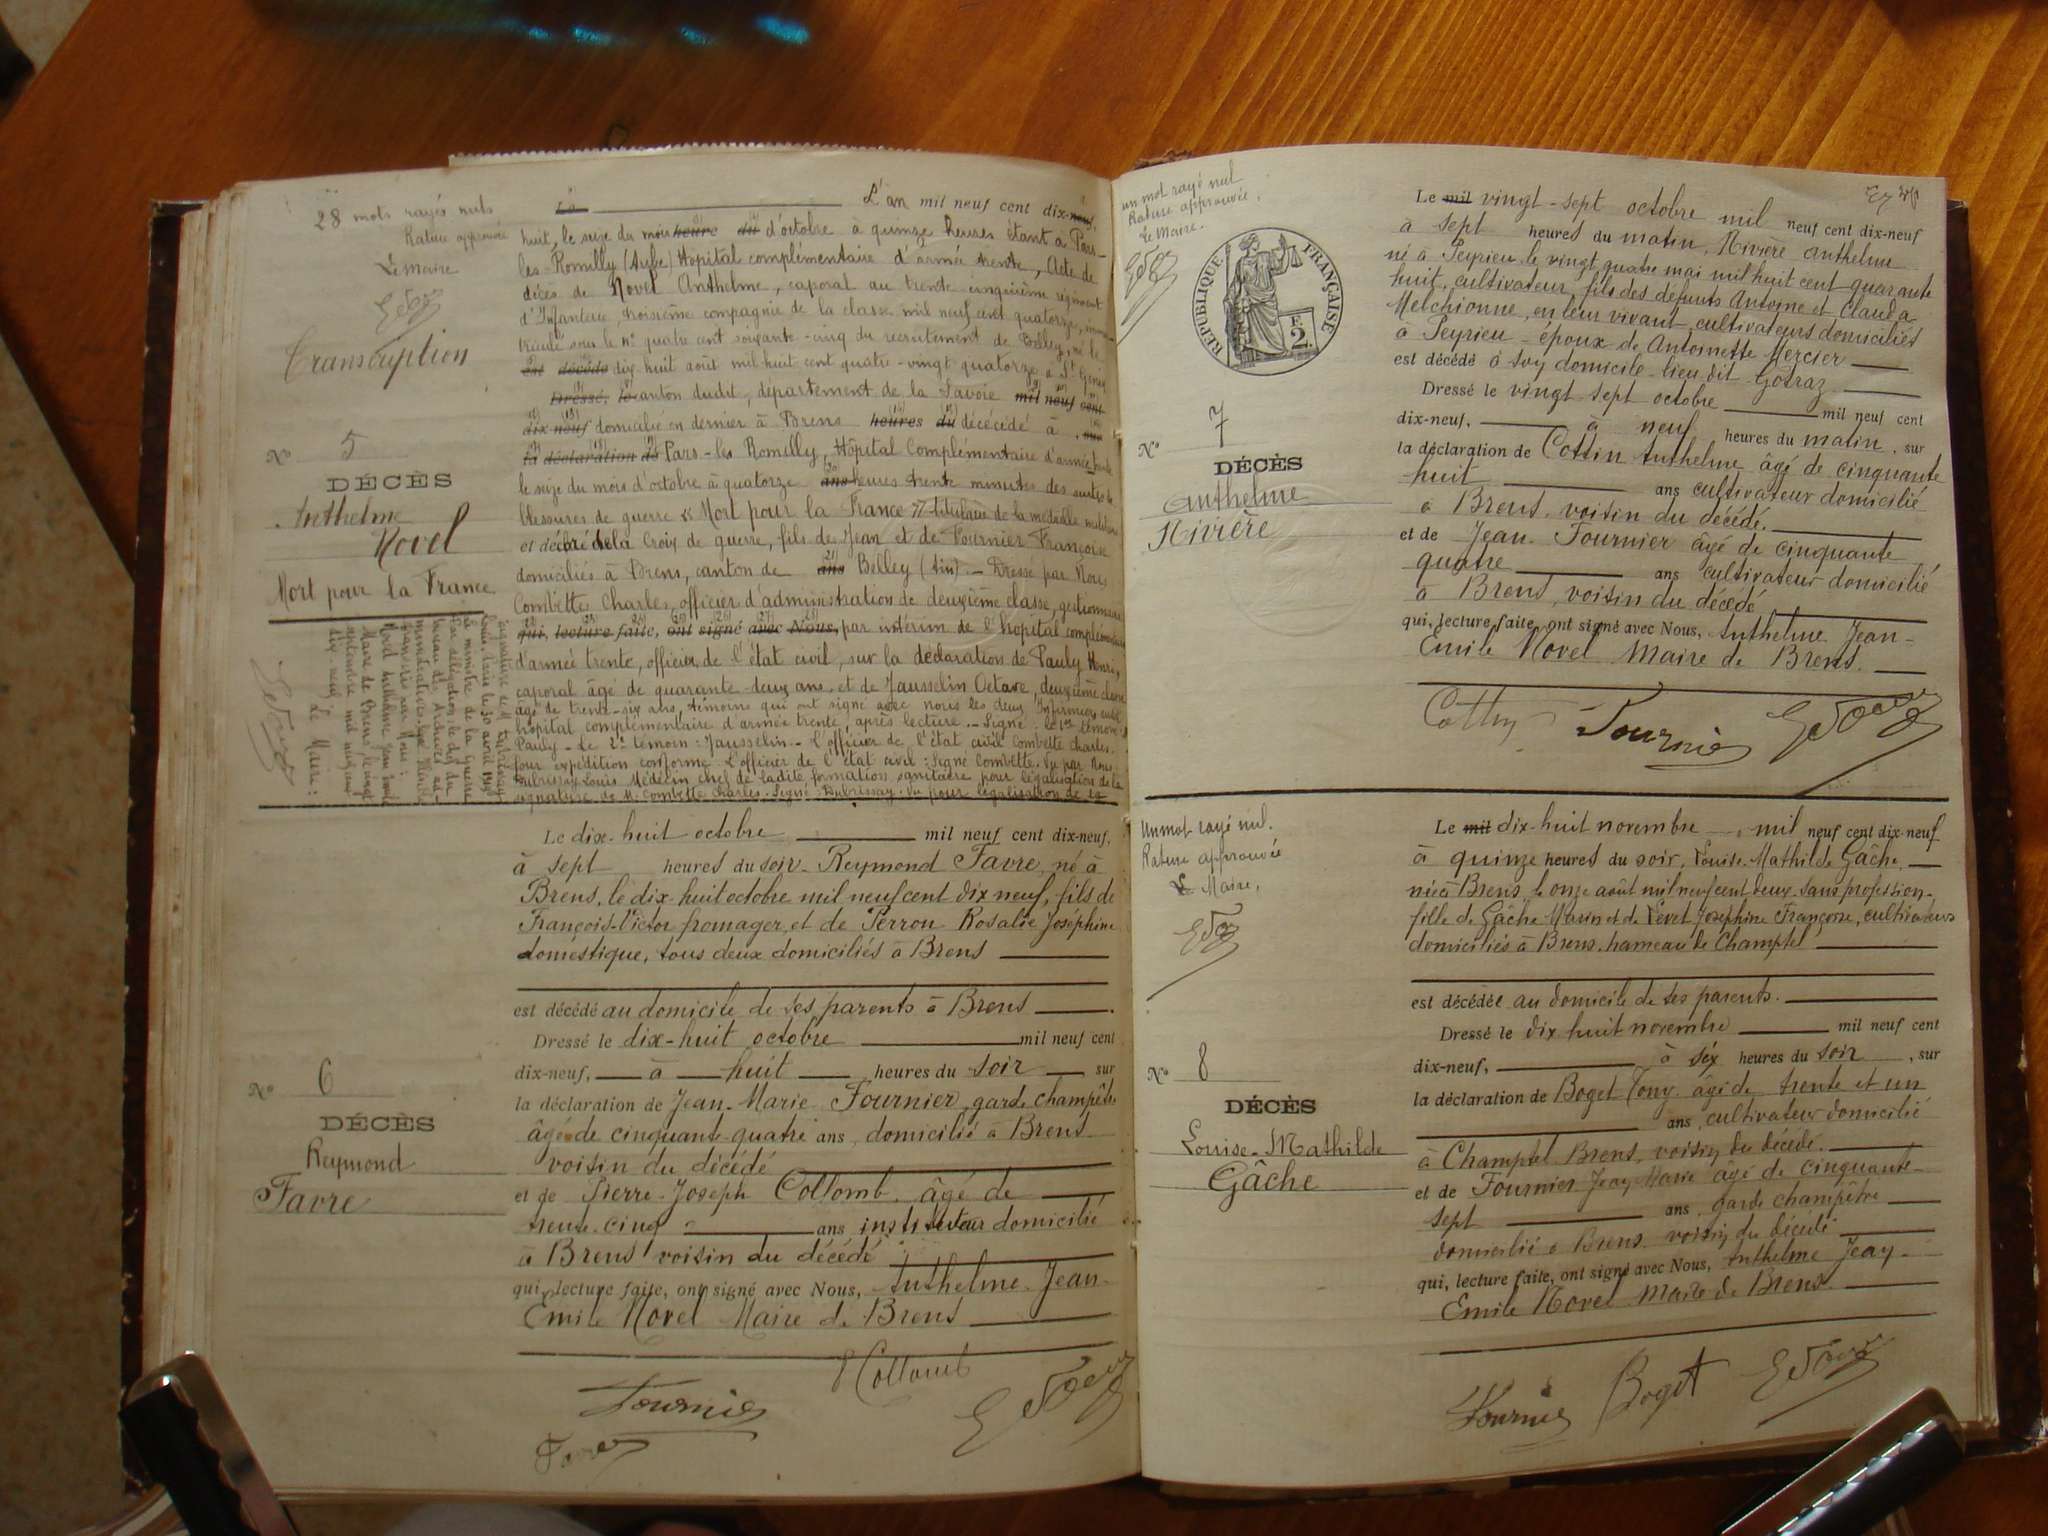 28 mots rayés nuls
Rature approuvée
Le Maire
Transcription
N° 5
DÉCÈS
Anthelme
Novel
Mort pour la France
signature de M. Dubrissay
Louis, Paris le 30 avril 1919
le ministre de la Guerre
Par délégation, le chef du
bureau des Archives ad-
ministratives, signé
Transcrit par Nous
Novel Anthelme Jean Emile
Maire de Brens, le vingt
septembre mil neuf cent
dix-neuf. Le Maire:
Le L'an mil neuf cent dix-neuf,
huit, le seize du mois heure du d'octobre à quinze heures étant à Pars-
les-Romilly (Aube) Hôpital complémentaire d'armée trente, Acte de
décès de Novel Anthelme, caporal au trente cinquième régiment
d'Infanterie, troisième compagnie de la classe mil neuf cent quatorze, imma-
triculé sous le n° quatre cent soixante-cinq du recrutement de Belley, né le
est décédé dix huit août mil huit cent quatre-vingt quatorze à St Genix
Dressé, le canton dudit, département de la Savoie mil neuf cent
dix-neuf domicilié en dernier à Brens heures du décécédé à , sur
la déclaration de Pars-les Romilly, Hôpital Complémentaire d'armée trente
le seize du mois d'octobre à quatorze ans heures trente minutes des suites de
blessures de guerre "Mort pour la France" titulaire de la médaille militaire
et décoré de la Croix de guerre, fils de Jean et de Fournier Françoise
domiciliés à Brens, canton de ans Belley (Ain). — Dressé par Nous
Combette Charles, officier d'administration de deuxième classe, gestionnaire
qui, lecture faite, ont signé avec Nous, par intérim de l'hôpital complémentaire
d'armée trente, officier de l'état civil, sur la déclaration de Pauly Henri,
caporal âgé de quarante-deux ans et de Jausselin Octave, deuxième classe
âgé de trente-six ans, témoins qui ont signé avec nous les deux Infirmiers audit
hôpital complémentaire d'armée trente, après lecture. — Signé: le 1er témoin
Pauly – le 2e témoin: Jausselin – L'officier de l'état civil Combette Charles.
Pour expédition conforme. L'officier de l'état civil: Signé Combette. Vu par Nous
Dubrissay Louis Médecin chef de ladite formation sanitaire pour légalisation de la
signature de M. Combette Charles. Signé: Dubrissay. Vu pour légalisation de la
N° 6
DÉCÈS
Reymond
Favre
Le dix-huit octobre mil neuf cent dix-neuf,
à sept heures du soir Reymond Favre, né à
Brens, le dix-huit octobre mil neuf cent dix neuf, fils de
François-Victor fromager et de Perron Rosalie Joséphine
doméstique, tous deux domiciliés à Brens
est décédé au domicile de ses parents à Brens
Dressé le dix-huit octobre mil neuf cent
dix-neuf, à huit heures du soir sur
la déclaration de Jean-Marie Fournier, garde champêtre
âgé de cinquante-quatre ans, domicilié à Brens
voisin du décédé
et de Pierre-Joseph Collomb âgé de
trente-cinq ans instituteur domicilié
à Brens voisin du décédé
qui, lecture faite, ont signé avec Nous, Anthelme Jean-
Emile Novel Maire de Brens
Collomb
Fournier
Favre
un mot rayé nul
Rature approuvée.
Le Maire.
RÉPUBLIQUE FRANÇAISE
F.
2.
N° 7
DÉCÈS
Anthelme
Rivière
Le mil vingt-sept octobre mil neuf cent dix-neuf
à sept heures du matin, Rivière Anthelme
né à Peyrieu le vingt quatre mai mil huit cent quarante
huit, cultivateur, fils des défunts Antoine et Clauda
Melchionne, en leur vivant cultivateurs domiciliés
à Peyrieu – époux de Antoinette Mercier
est décédé à soy domicile – lieu dit Gotraz
Dressé le vingt sept octobre mil neuf cent
dix-neuf, à neuf heures du matin, sur
la déclaration de Cottin Anthelme âgé de cinquante
huit ans cultivateur domicilié
à Brens, voisin du décédé.
et de Jean Fournier âgé de cinquante
quatre ans cultivateur domicilié
à Brens, voisin du décédé
qui, lecture faite, ont signé avec Nous, Anthelme Jean-
Emile Novel Maire de Brens.
Cottin Fournier
Un mot rayé nul.
Rature approuvée
Le Maire,
N° 8
DÉCÈS
Louise-Mathilde
Gâche
Le mil dix-huit novembre mil neuf cent dix-neuf
à quinze heures du soir, Louise-Mathilde Gâche,
née à Brens, le onze août mil neuf cent deux, sans profession-
fille de Gâche Marin et de Levet Joséphine Françoise, cultivateurs
domiciliés à Brens, hameau de Champtel
est décédée au domicile de ses parents.
Dressé le dix huit novembre mil neuf cent
dix-neuf, à six heures du soir, sur
la déclaration de Boget Tony âgé de trente et un
ans, cultivateur domicilié
à Champtel Brens, voisin du décédé.
et de Fournier Jean Marie âgé de cinquante-
sept ans, garde champêtre
domicilié à Brens voisin du décédé
qui, lecture faite, ont signé avec Nous, Anthelme Jean-
Emile Novel Maire de Brens.
Fournier Boget